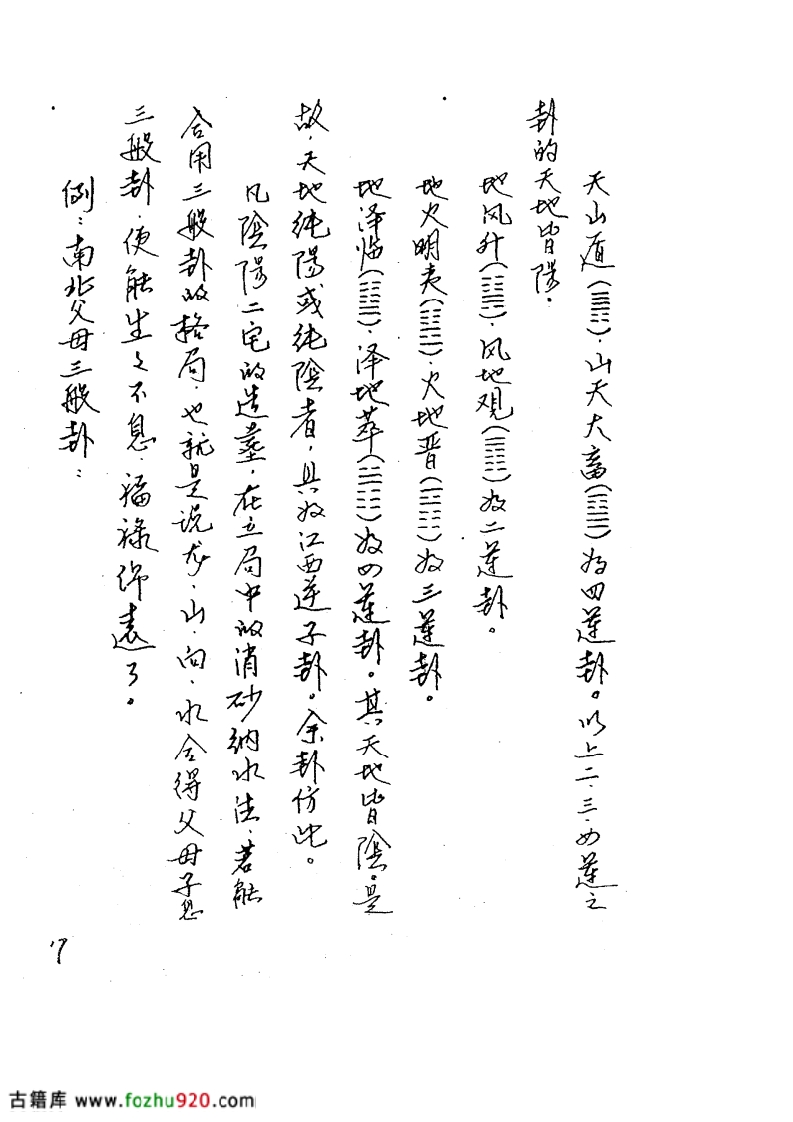 天山遁(䷠)、山天大畜(䷙)为四運卦。以上二、三、四運之
卦的天地皆陽.
地风升(䷭)、风地观(䷓)为二運卦。
地火明夷(䷣)、火地晋(䷢)为三運卦。
地泽临(䷒)、泽地萃(䷬)为四運卦。其天地皆陰。是
故，天地纯陽或纯陰者，具为江西運子卦。余卦仿此。
凡陰陽二宅的造葬，在立局中的消砂纳水法，若能
合用三般卦的格局，也就是说龙、山、向、水合得父母子息
三般卦，便能生々不息，福禄绵遠了。
例：南北父母三般卦：
17
古籍库 www.fozhu920.com